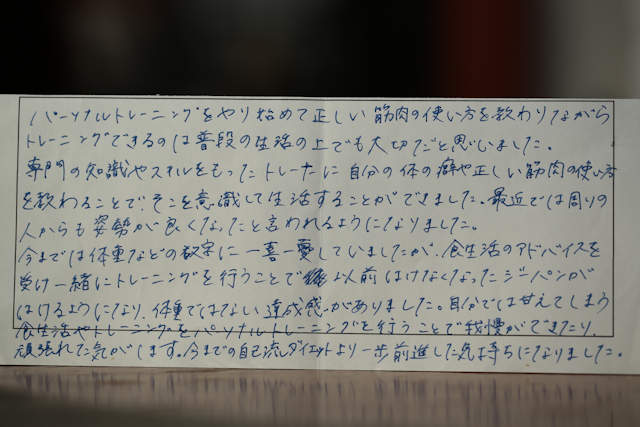 パーソナルトレーニングをやり始めて正しい筋肉の使い方を教わりながら
トレーニングできるのは普段の生活の上でも大切だと思いました。
専門の知識やスキルをもったトレーナーに自分の体の癖や正しい筋肉の使い方
を教わることで、そこを意識して生活することができました。最近では周りの
人からも姿勢が良くなったと言われるようになりました。
今までは体重などの数字に一喜一憂していましたが、食生活のアドバイスを
受け一緒にトレーニングを行うことで以前はけなくなったジーパンが
はけるようになり、体重ではない達成感がありました。自分では甘えてしまう
食生活やトレーニングをパーソナルトレーニングを行うことで我慢ができたり、
頑張れた気がします。今までの自己流ダイエットより一歩前進した気持ちになりました。